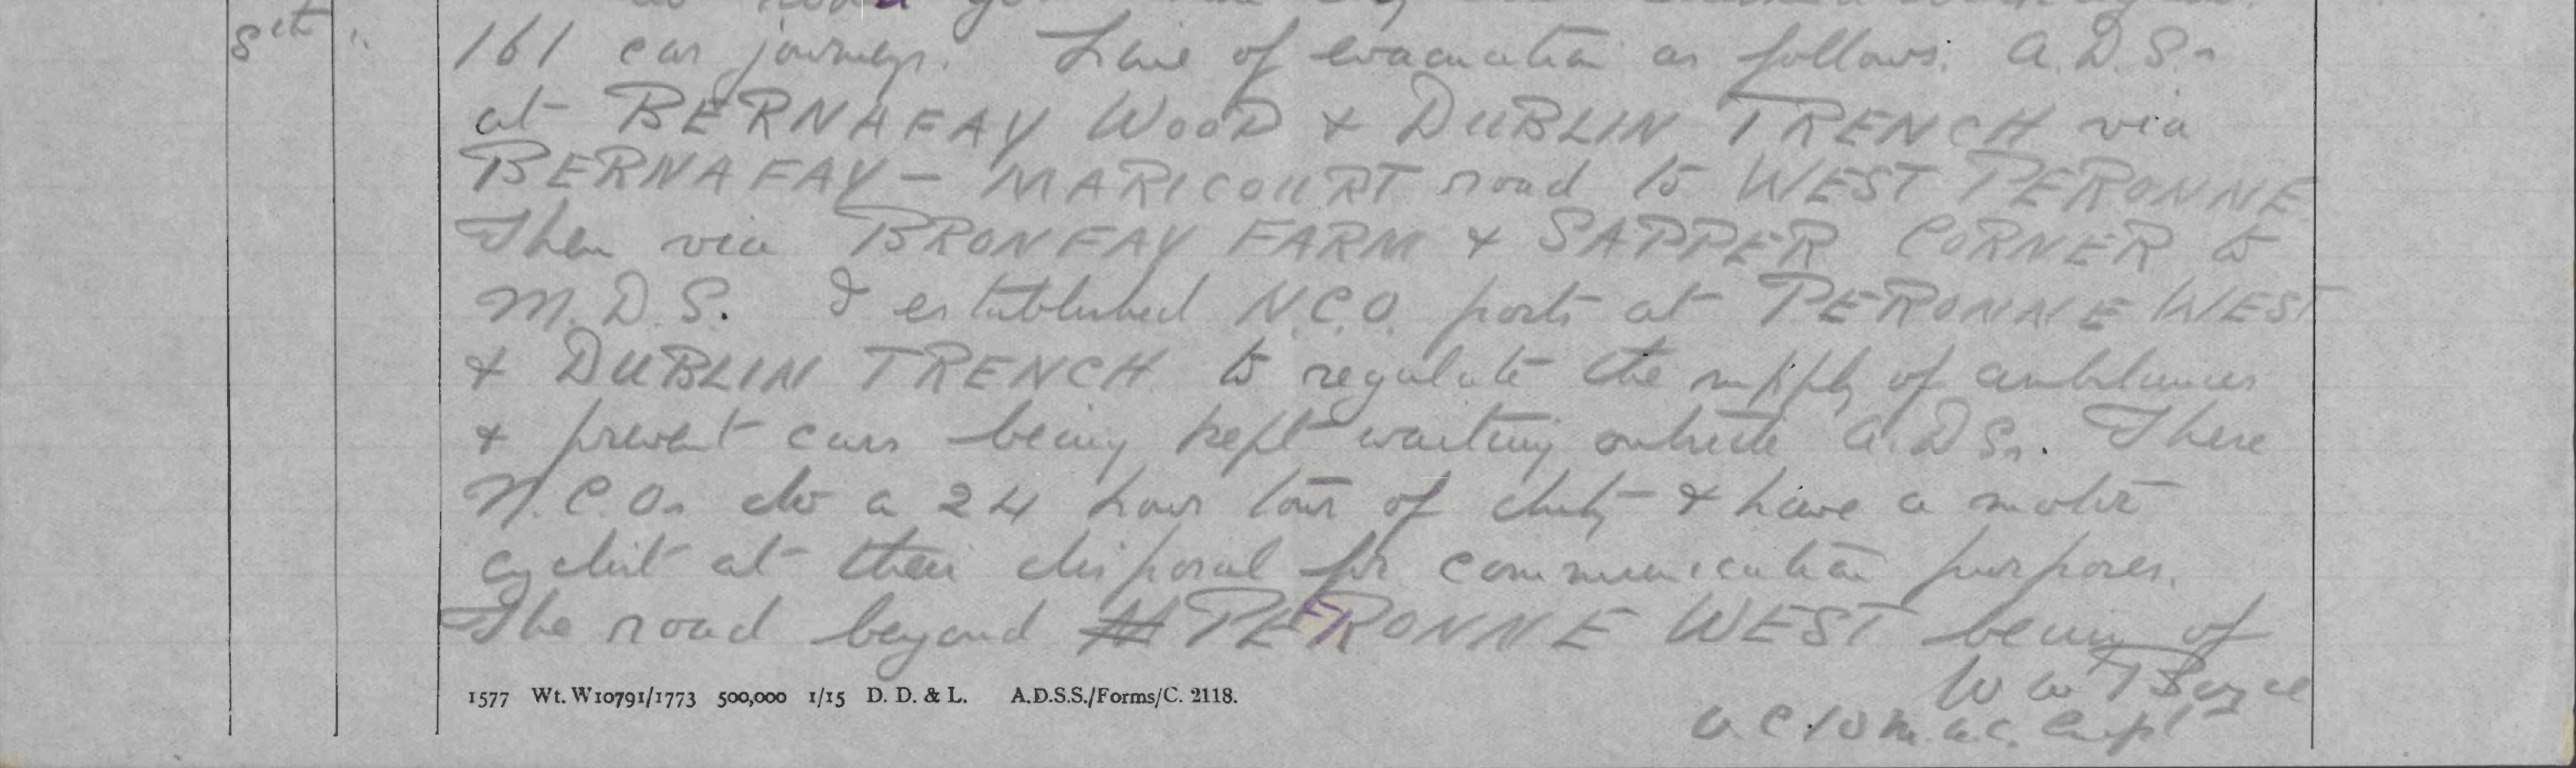 8th "
161 car journeys. Line of evacuation as follows: A.D.S.s
at BERNAFAY WOOD & DUBLIN TRENCH via
BERNAFAY - MARICOURT road to WEST PERONNE
Then via BRONFAY FARM & SAPPER CORNER to
M.D.S. I established N.C.O. posts at PERONNE WEST
& DUBLIN TRENCH to regulate the supply of ambulances
& prevent cars being kept waiting outside A.D.Ss. These
N.C.Os do a 24 hour tour of duty & have a motor
cyclist at their disposal for communication purposes.
The road beyond PERONNE WEST being of
W W Boyce
O.C. 10 M.A.C. Capt
1577 Wt. W10791/1773 500,000 1/15 D. D. & L. A.D.S.S./Forms/C. 2118.